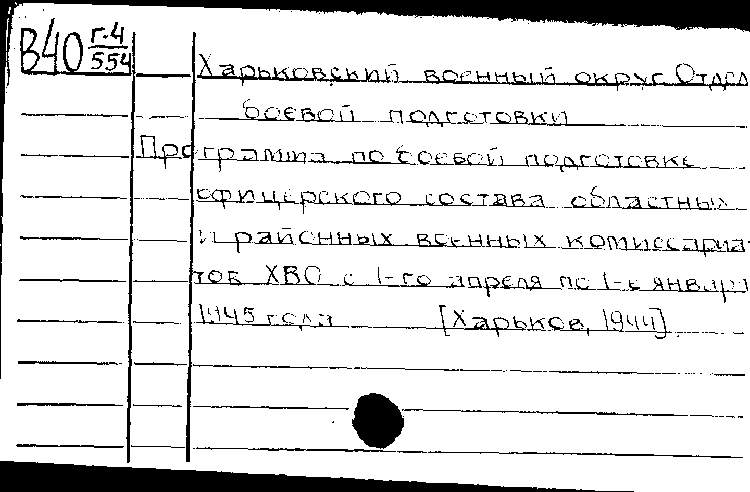 В40 г.4/554
Харьковский военный округ. Отдел
боевой подготовки
Программа по боевой подготовке
офицерского состава областных
и районных военных комиссариа-
тов ХВО с 1-го апреля по 1-е января
1945 года [Харьков, 1944]